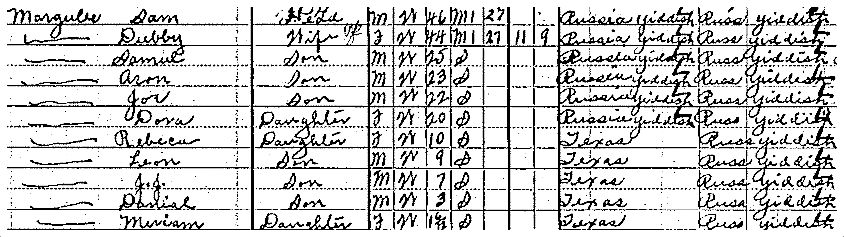 Margulec Sam Head M W 46 M1 27 Russia Yiddish Russ Yiddish
Dubby Wife F W 44 M1 27 11 9 Russia Yiddish Russ Yiddish
Samuel Son M W 25 S Russia Yiddish Russ Yiddish
Aron Son M W 23 S Russia Yiddish Russ Yiddish
Joe Son M W 22 S Russia Yiddish Russ Yiddish
Dora Daughter F W 20 S Russia Yiddish Russ Yiddish
Rebeca Daughter F W 10 S Texas Russ Yiddish
Leon Son M W 9 S Texas Russ Yiddish
J.J. Son M W 7 S Texas Russ Yiddish
Danial Son M W 3 S Texas Russ Yiddish
Meriam Daughter F W S Texas Russ Yiddish